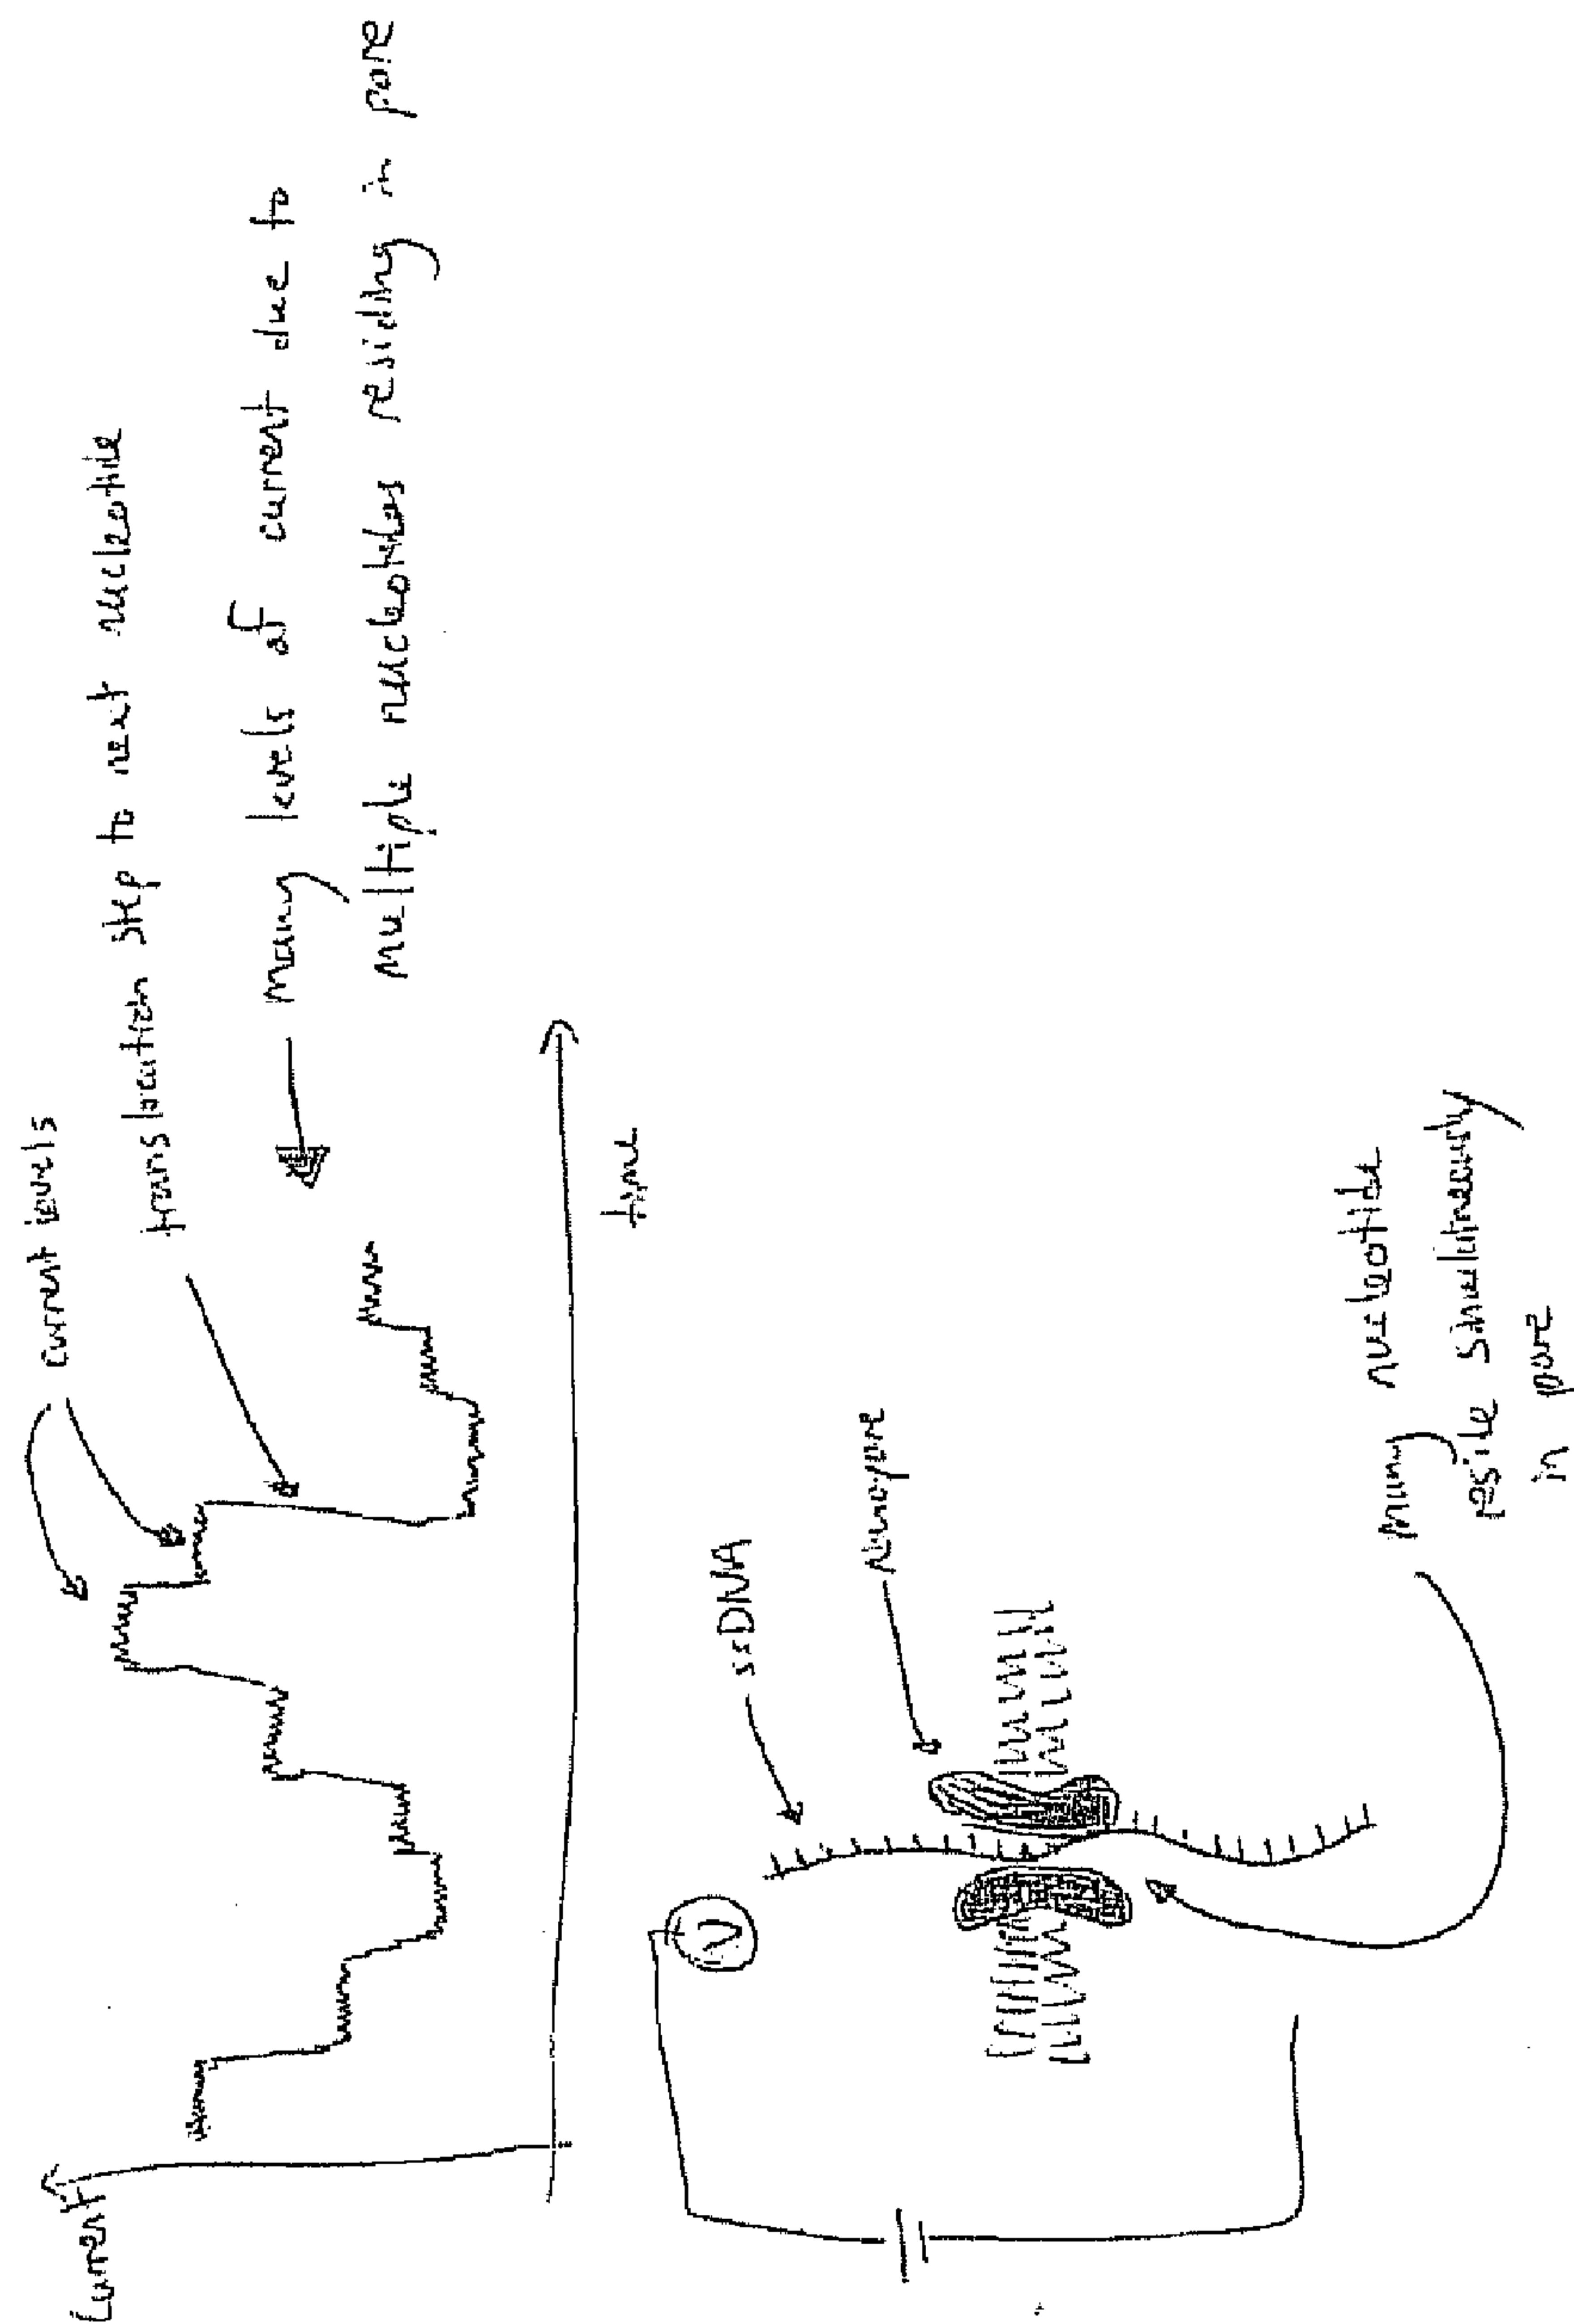 current
current levels
translocation step to next nucleotide
many levels of current due to
multiple nucleotides residing in pore
time
V
ssDNA
Nanopore
many nucleotide
reside simulutneously
in pore